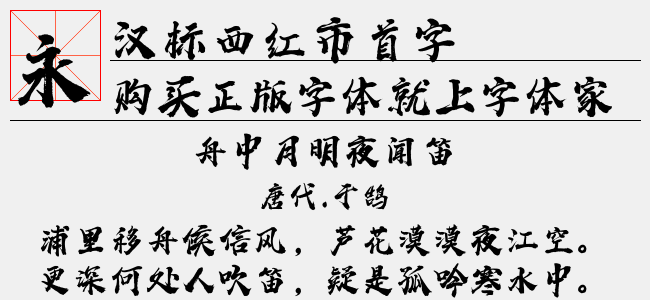 永
汉标西红市首字
购买正版字体就上字体家
舟中月明夜闻笛
唐代.于鹄
浦里移舟候信风，芦花漠漠夜江空。
更深何处人吹笛，疑是孤吟寒水中。